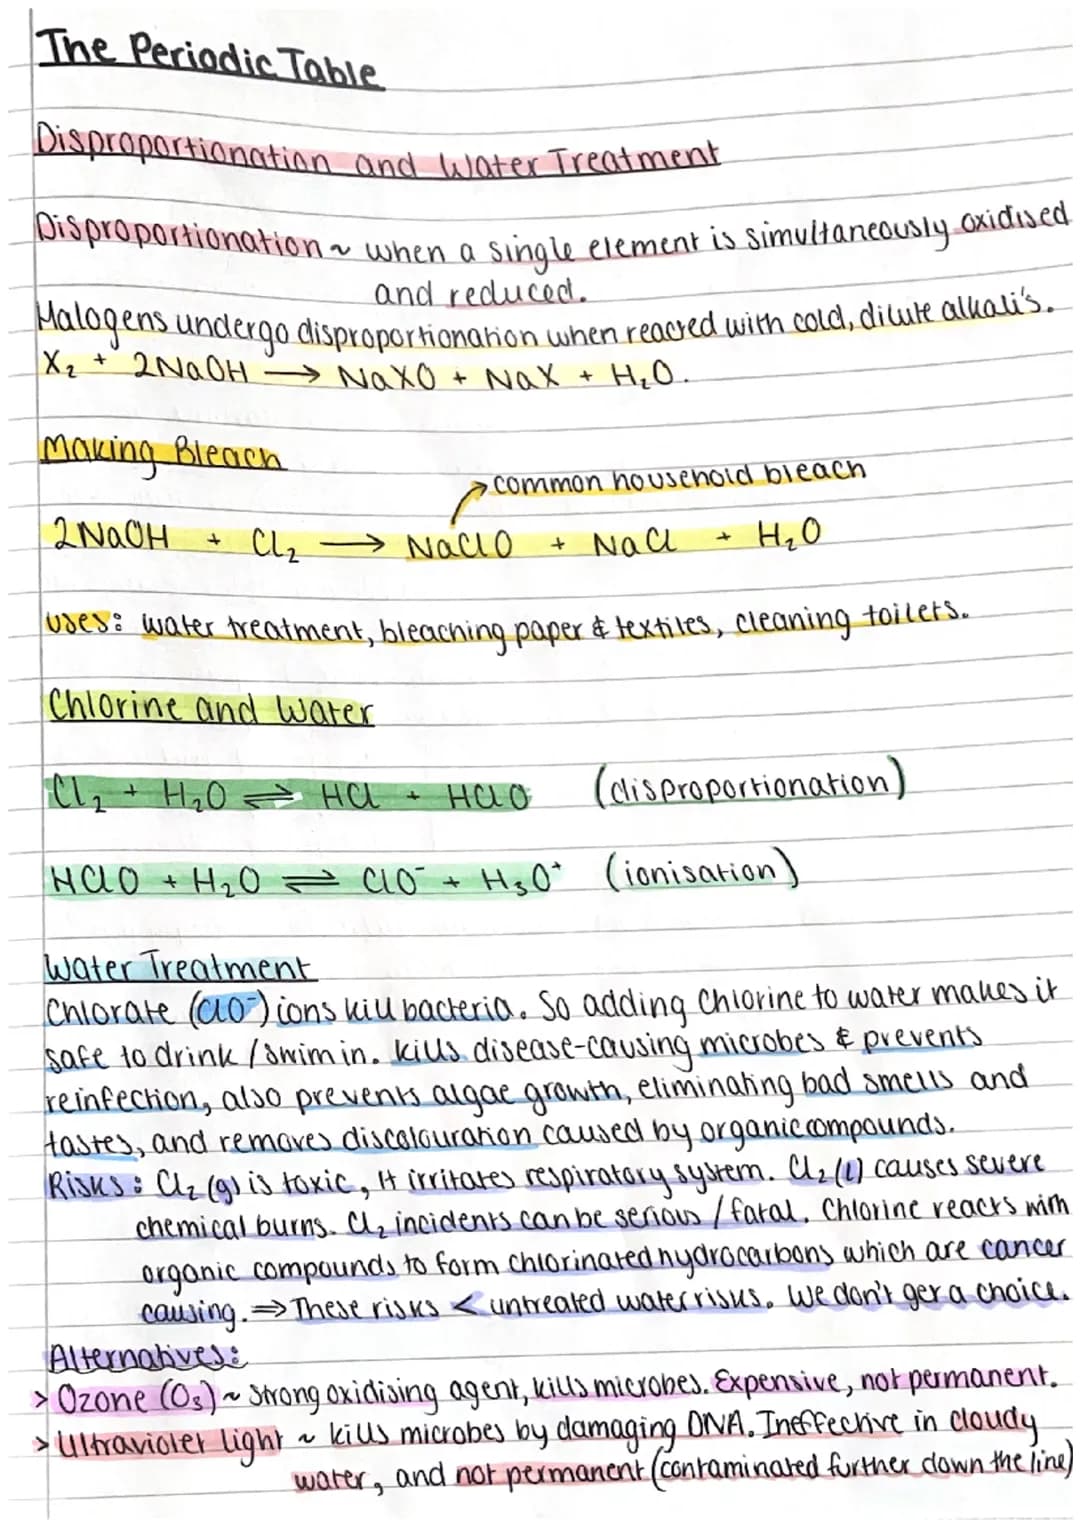 The Periodic Table
Disproportionation and Water Treatment
Disproportionation ~ when a single element is simultaneously oxidised
and reduced.
Halogens undergo disproportionation when reacted with cold, dilute alkali's.
X₂ + 2NaOH → NaXO + NaX + H₂O.
Making Bleach
common household bleach
2NaOH + Cl₂ → NaClO + NaCl + H₂O
uses: water treatment, bleaching paper & textiles, cleaning toilets.
Chlorine and Water
Cl₂ + H₂O ⇌ HCl + HClO (disproportionation)
HClO + H₂O ⇌ ClO⁻ + H₃O⁺ (ionisation)
Water Treatment
Chlorate (ClO⁻) ions kill bacteria. So adding Chlorine to water makes it
safe to drink / swim in. kills disease-causing microbes & prevents
reinfection, also prevents algae growth, eliminating bad smells and
tastes, and removes discolouration caused by organic compounds.
Risks: Cl₂ (g) is toxic, It irritates respiratory system. Cl₂ (l) causes severe
chemical burns. Cl₂ incidents can be serious / fatal. Chlorine reacts with
organic compounds to form chlorinated hydrocarbons which are cancer
causing. ⇒ These risks < untreated water risks. We don't get a choice.
Alternatives:
> Ozone (O₃) ~ strong oxidising agent, kills microbes. Expensive, not permanent.
> Ultraviolet light ~ kills microbes by damaging DNA. Ineffective in cloudy
water, and not permanent (contaminated further down the line)